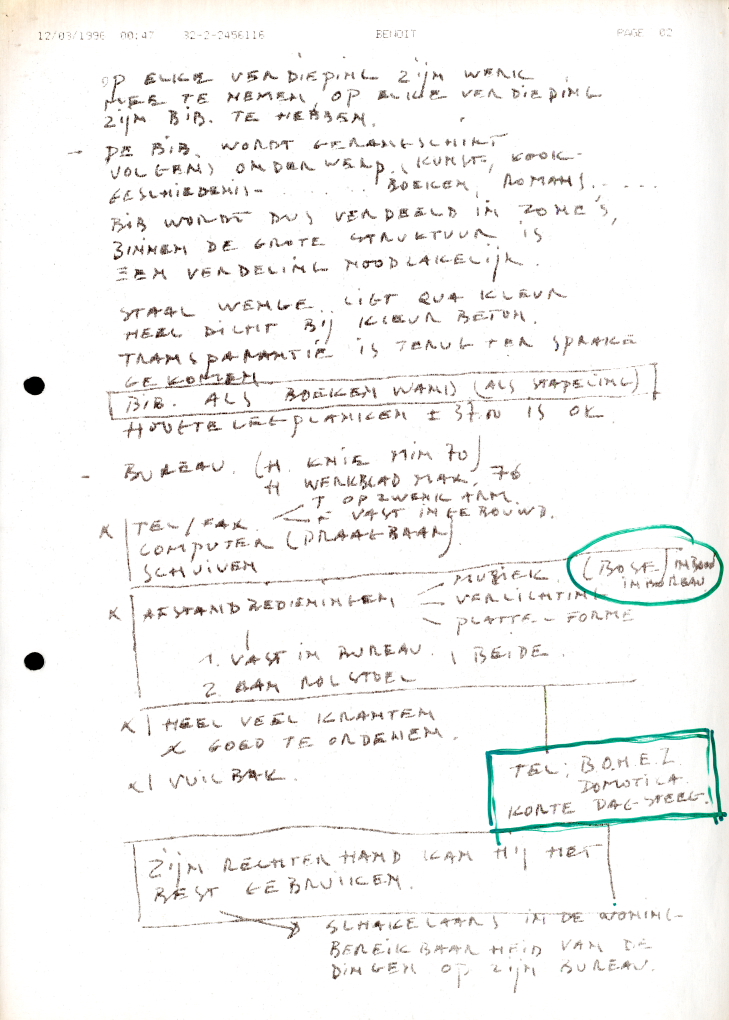 12/03/1996 00:47 32-2-2456116 BENOIT PAGE 02
OP ELKE VERDIEPING ZIJN WERK
MEE TE NEMEN, OP ELKE VERDIEPING
ZIJN BIB. TE HEBBEN.
- DE BIB. WORDT GERANGSCHIKT
VOLGENS ONDERWERP. (KUNST, KOOK-
GESCHIEDENIS- ........ BOEKEN, ROMANS.....
BIB WORDT DUS VERDEELD IN ZONE'S,
BINNEN DE GROTE STRUKTUUR IS
EEN VERDELING NOODZAKELIJK.
STAAL WENGE LIGT QUA KLEUR
HEEL DICHT BIJ KLEUR BETON.
TRANSPARANTIE IS TERUG TER SPRAKE
GEKOMEN
BIB. ALS BOEKENWAND (ALS STAPELING)
HOOGTE LEGPLANKEN ± 37.00 IS OK.
- BUREAU. (H. KNIE MIN 70)
H WERKBLAD MAX. 76
T OP ZWENK ARM.
X TEL/FAX. F VAST INGEBOUWD.
COMPUTER (DRAAGBAAR)
SCHUIVEN
MUZIEK. (BOSE) INBOUW
IN BUREAU
X AFSTANDBEDIENINGEN VERLICHTING
PLATTE-FORME
1. VAST IN BUREAU. } BEIDE.
2. AAN ROLSTOEL
X HEEL VEEL KRANTEN
X GOED TE ORDENEN.
X VUILBAK.
TEL: B.O.H.E.Z.
DOMOTICA.
KORTE DAGSTEEG.
ZIJN RECHTER HAND KAN HIJ HET
BEST GEBRUIKEN.
SCHAKELAARS IN DE WONING-
BEREIKBAARHEID VAN DE
DINGEN OP ZIJN BUREAU.